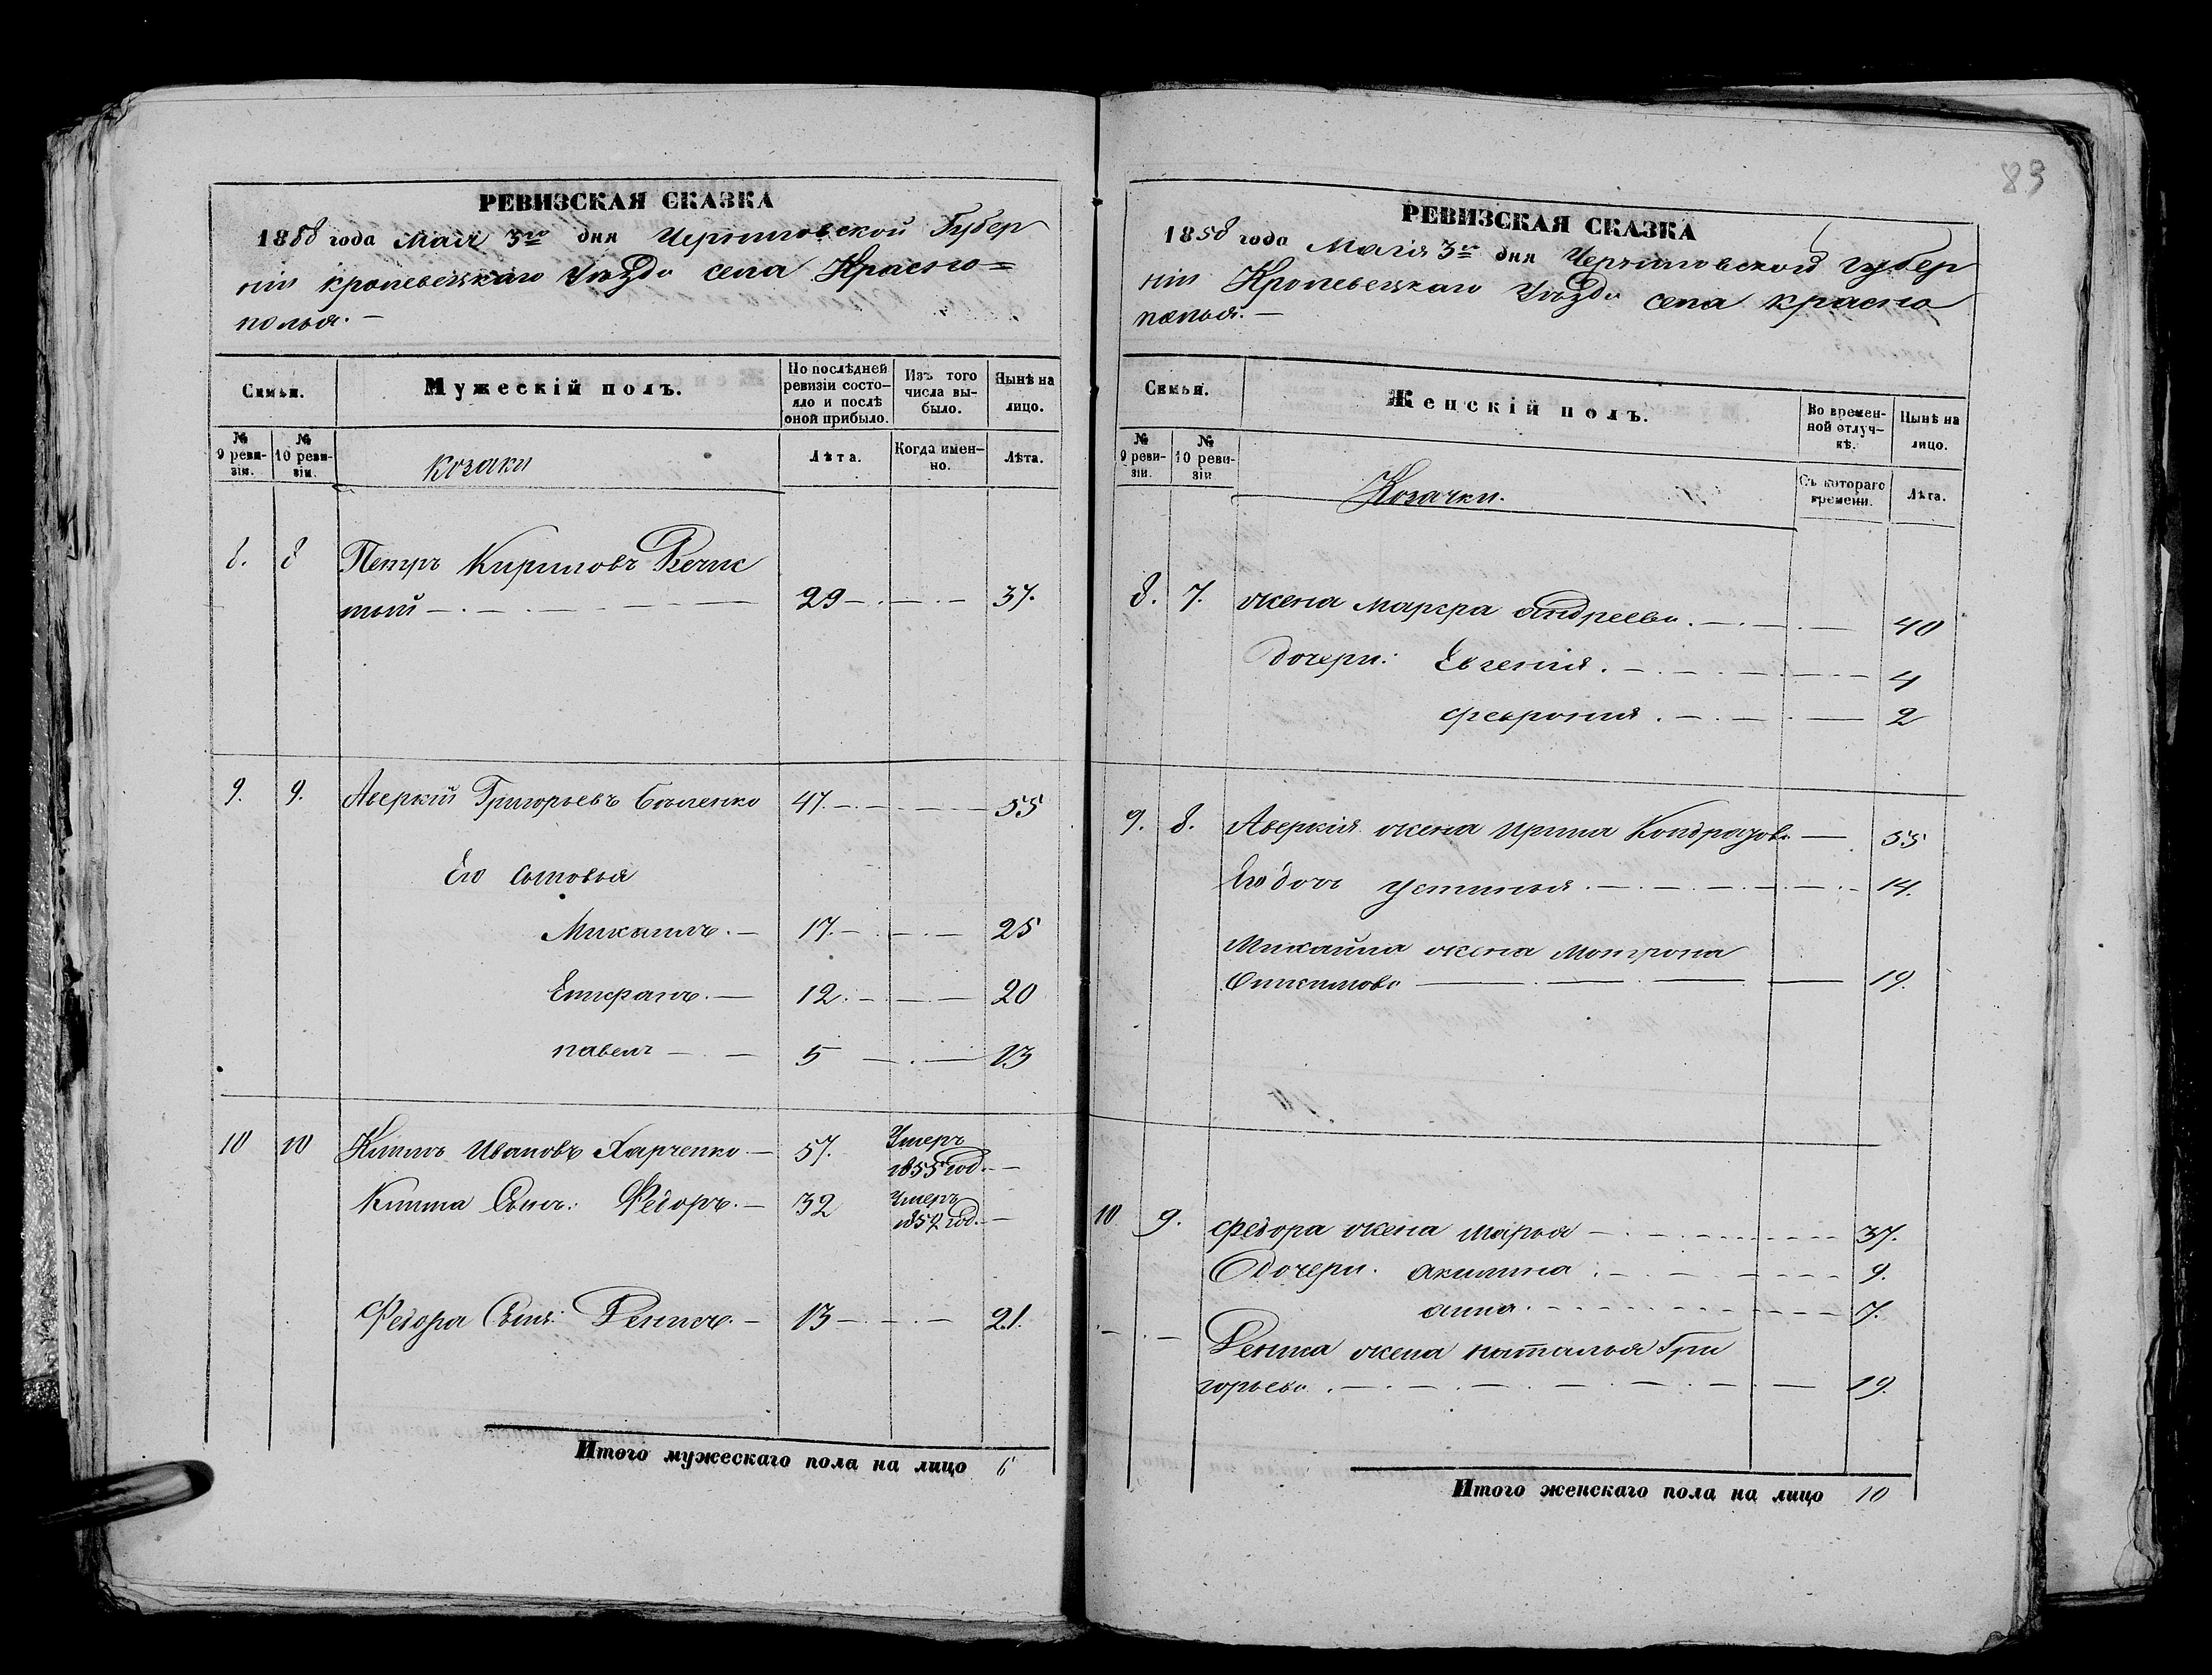 83
РЕВИЗСКАЯ СКАЗКА
1858 года Мая 3го дня Черниговской Губер
ніи кролевецкаго Уѣзда села Красно=
полья. —
Семьи.
Мужескій полъ.
По послѣдней ревизіи состояло и послѣ оной прибыло.
Изъ того числа выбыло.
Нынѣ на лицо.
№ 9 ревизіи.
№ 10 ревизіи.
козаки
Лѣта.
Когда именно.
Лѣта.
8. 8 Петръ Кириловъ
тый — 29 — 37.
9. 9. Аверкій Григорьевъ 47. — 55
Его сыновья
Михаилъ. — 17. — 25
Епифанъ. — 12. — 20
павелъ — 5 — 13
10 10 Климъ Ивановъ Харченко — 57. Умеръ 1855 год. —
Клима Сынъ: Федоръ. — 32 Умеръ 1852 год. —
Федора Сынъ: Денисъ. — 13 — 21.
Итого мужескаго пола на лицо 6
РЕВИЗСКАЯ СКАЗКА
1858 года Маія 3го дня Черниговской губер
ніи Кролевецкаго Уѣзда села красно
полья. —
Семьи.
Женскій полъ.
Во временной отлучкѣ.
Нынѣ на лицо.
№ 9 ревизіи.
№ 10 ревизіи
Козачки.
Съ котораго времени.
Лѣта.
8. 7. жена марфа андреева. — 40
дочери: Евгенія. — 4
феврония. — 2
9. 8. Аверкія жена Ирина Кондратова — 55
Его дочь устинья. — 14.
Михайла жена Мотрона
Онисимова — 19.
10 9. федора жена марья — 37.
дочери. акилина. — 9.
анна. — 7.
Дениса жена наталья Гри
горьева. — 19.
Итого женскаго пола на лицо 10